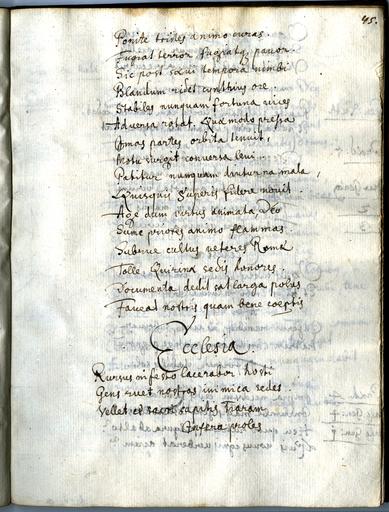 45.
Ponite tristes animo curas.
Fugiat terror fugiatq; pavor.
Sic post sævi tempora nimbi
Blandum ridet cynthius ore.
Stabiles nunquam fortuna vices
Adversa rotat. Quæ modo pressa
Imas partes orbita tenuit,
Motu surgit conversa levi.
Patitur nunquam diuturna mala,
Quisquis superis fidere novit.
Age dum virtus animata Deo
Sume priores animo flammas
Subrue cultus veteres Romæ
Tolle Quirinæ sedis honores.
Documenta dedit sat larga polus
Faveat nostris quam bene coeptis
Ecclesia.
Rursus infesto laceratur hosti
Gens ruet nostras inimica sedes
Vellet et sacro capitis tiaram
proles